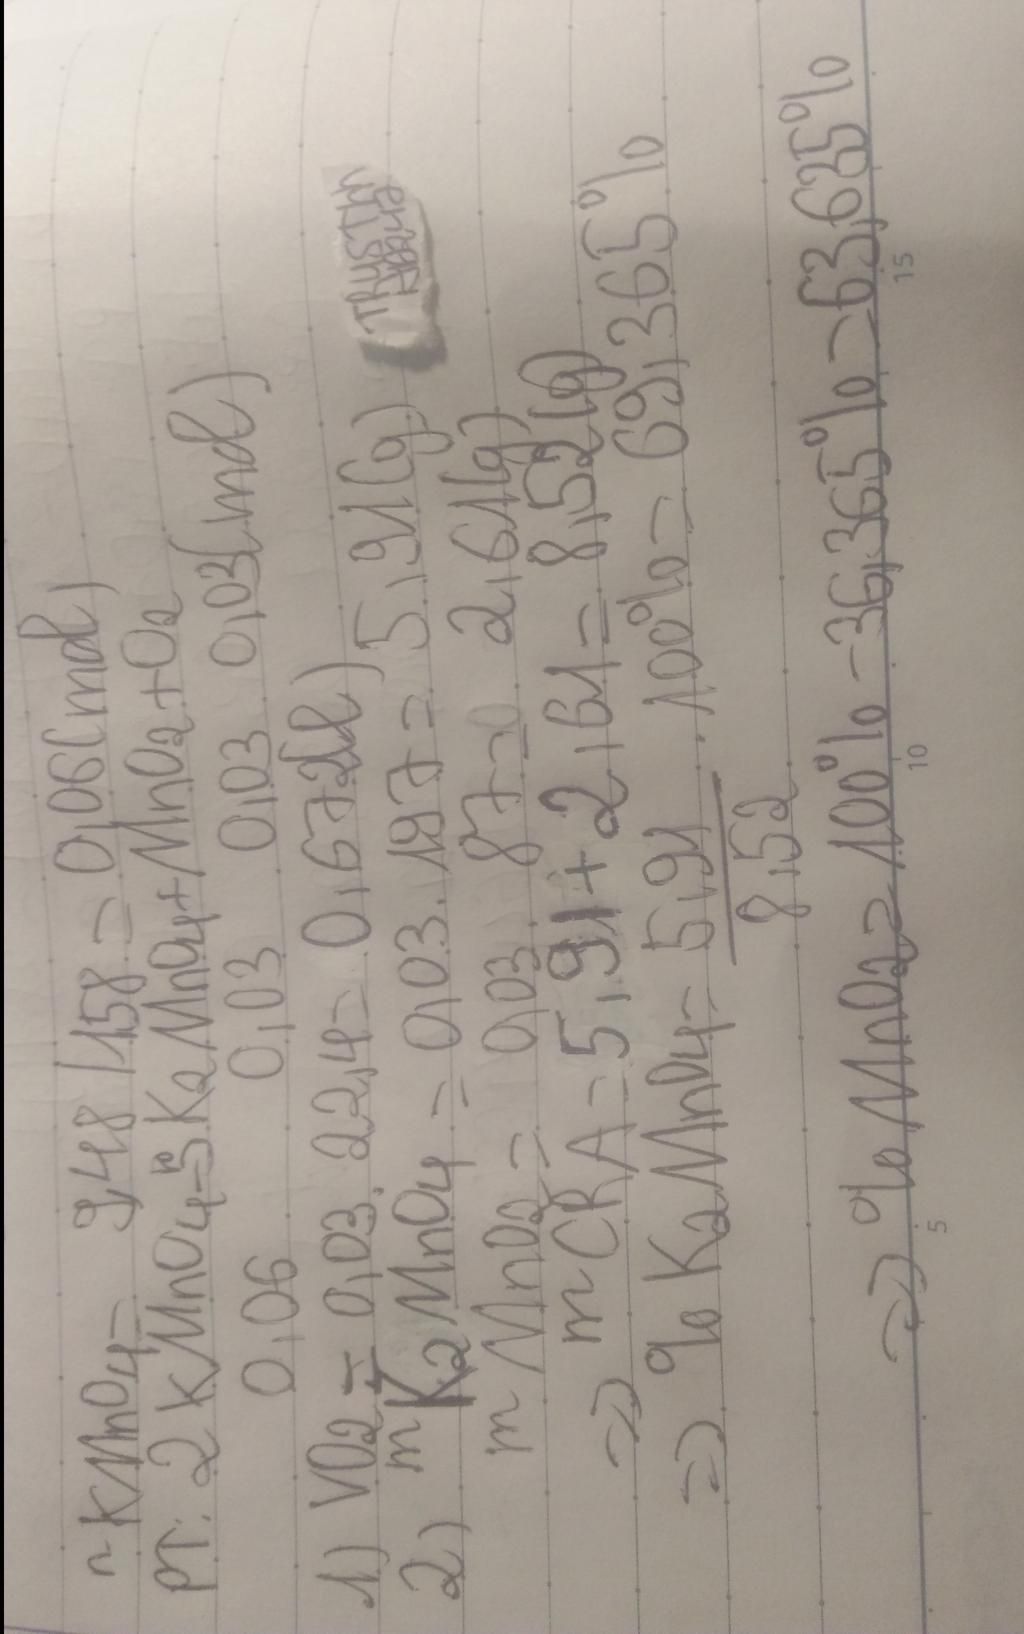 nKMnO4= 9,48/158= 0,06(mol)
PT: 2KMnO4-to K2MnO4+MnO2+O2
0,06 0,03 0,03 0,03(mol)
1) VO2= 0,03. 22,4= 0,672(l)
2) mK2MnO4 = 0,03. 197= 5,91(g)
mMnO2= 0,03 87= 2,61(g)
=> mCRA=5,91+2,61= 8,52(g)
=> %K2MnO4= 5,91 .100%= 69,365%
8,52
=> %MnO2=100%-36,365%=63,635%
5 10 15